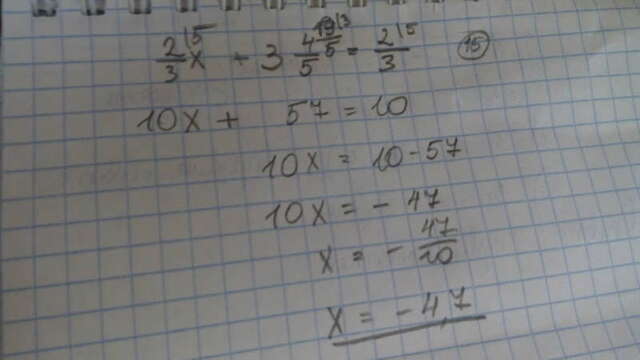 2/3 |5 x + 3 4/5 19/5 |3 = 2/3 |5 15
10x + 57 = 10
10x = 10 - 57
10x = - 47
x = - 47/10
x = - 4,7